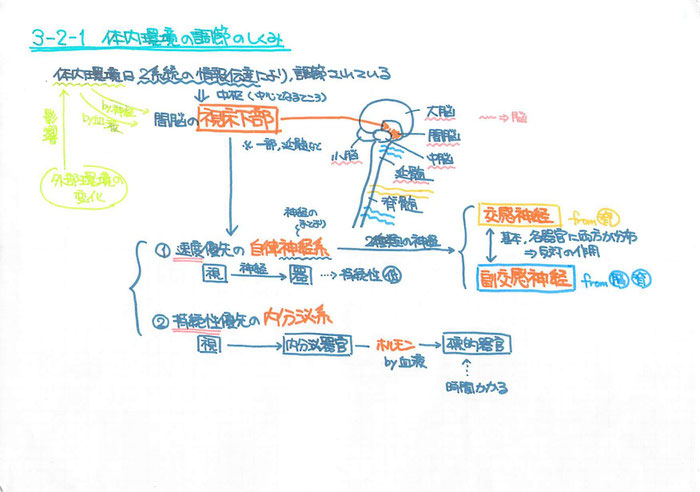 3-2-1 体内環境の調節のしくみ
体内環境は2系統の情報伝達により、調節されている
⇓ 中枢(中心となるところ)
間脳の視床下部
※一部、延髄など
影響
by神経
by血液
外部環境の変化
大脳
間脳
中脳
小脳
延髄
脊髄
〰⇒脳
① 速度優先の自律神経系
神経のまとまり
2種類の神経
視 神経→ 器 …→持続性低
交感神経 from脊
基本、各器官に両方が分布
⇒反対の作用
副交感神経 from脳脊
② 持続性優先の内分泌系
視 → 内分泌器官 → ホルモン → 標的器官
by血液
時間かかる